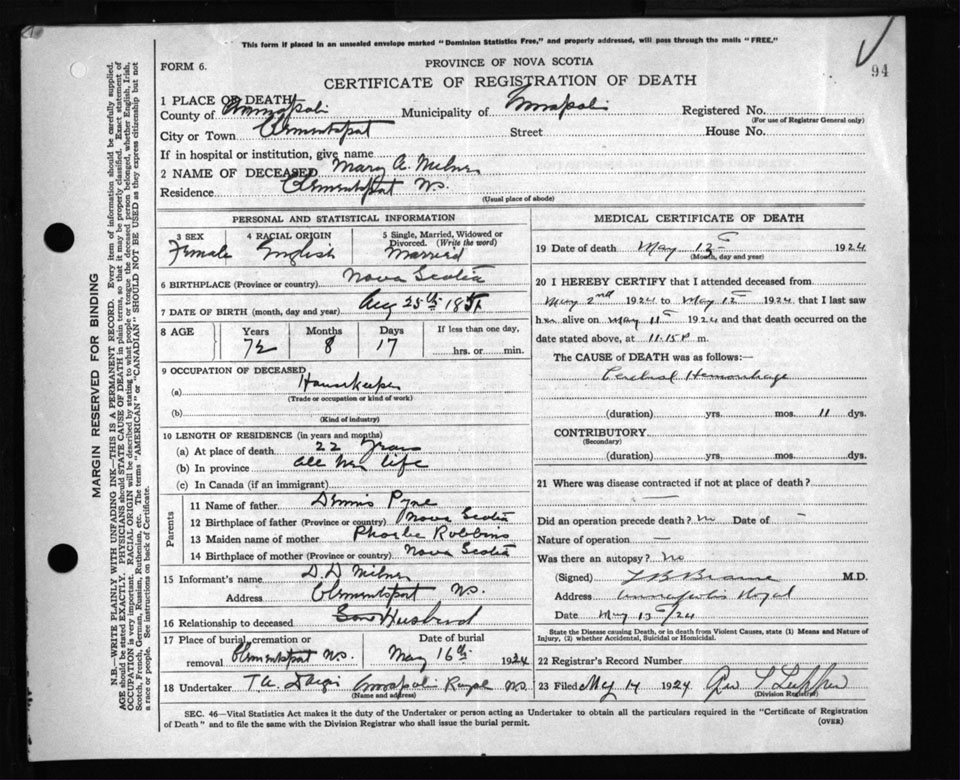 This form if placed in an unsealed envelope marked "Dominion Statistics Free," and properly addressed, will pass through the mails "FREE."
94
FORM 6.
PROVINCE OF NOVA SCOTIA
CERTIFICATE OF REGISTRATION OF DEATH
1 PLACE OF DEATH
County of Annapolis Municipality of Annapolis Registered No.
(For use of Registrar General only)
City or Town Clementsport Street House No.
If in hospital or institution, give name
2 NAME OF DECEASED Mary A. Milner
Residence Clementsport N.S.
(Usual place of abode)
PERSONAL AND STATISTICAL INFORMATION
3 SEX 4 RACIAL ORIGIN 5 Single, Married, Widowed or Divorced. (Write the word)
Female English Married
6 BIRTHPLACE (Province or country) Nova Scotia
7 DATE OF BIRTH (month, day and year) Aug 25th 1851
8 AGE Years Months Days If less than one day,
72 8 17 hrs. or min.
9 OCCUPATION OF DECEASED
(a) Housekeeper
(Trade or occupation or kind of work)
(b)
(Kind of industry)
10 LENGTH OF RESIDENCE (in years and months)
(a) At place of death 22 years
(b) In province all her life
(c) In Canada (if an immigrant)
Parents
11 Name of father Dennis Pyne
12 Birthplace of father (Province or country) Nova Scotia
13 Maiden name of mother Phoebe Robbins
14 Birthplace of mother (Province or country) Nova Scotia
15 Informant's name D. D Milner
Address Clementsport N.S.
16 Relationship to deceased Husband
17 Place of burial, cremation or Date of burial
removal Clementsport N.S. May 16th 1924
18 Undertaker Annapolis Royal N.S.
(Name and address)
MEDICAL CERTIFICATE OF DEATH
19 Date of death May 1924
(Month, day and year)
20 I HEREBY CERTIFY that I attended deceased from
May 2nd 1924 to May 12 1924, that I last saw
her alive on May 11 1924 and that death occurred on the
date stated above, at 11.15 P m.
The CAUSE OF DEATH was as follows:—
Cerebral Hemorrhage
(duration) yrs. mos. 11 dys.
CONTRIBUTORY
(Secondary)
(duration) yrs. mos. dys.
21 Where was disease contracted if not at place of death?
—
Did an operation precede death? No Date of —
Nature of operation —
Was there an autopsy? No
(Signed) M.D.
Address Annapolis Royal
Date May 13/24
State the Disease causing Death, or in death from Violent Causes, state (1) Means and Nature of
Injury, (2) whether Accidental, Suicidal or Homicidal.
22 Registrar's Record Number
23 Filed May 1924
(Division Registrar)
SEC. 46—Vital Statistics Act makes it the duty of the Undertaker or person acting as Undertaker to obtain all the particulars required in the "Certificate of Registration
of Death" and to file the same with the Division Registrar who shall issue the burial permit.
(OVER)
MARGIN RESERVED FOR BINDING
N.B.—WRITE PLAINLY WITH UNFADING INK—THIS IS A PERMANENT RECORD. Every item of information should be carefully supplied.
AGE should be stated EXACTLY. PHYSICIANS should STATE CAUSE OF DEATH in plain terms, so that it may be properly classified. Exact statement of
OCCUPATION is very important. RACIAL ORIGIN will be described by stating to what people or tongue the deceased person belonged, whether English, Irish,
Scotch, French, German, Russian, Ruthenian, etc. The terms "AMERICAN" or "CANADIAN" SHOULD NOT BE USED as they express citizenship but not
a race or people. See instructions on back of Certificate.